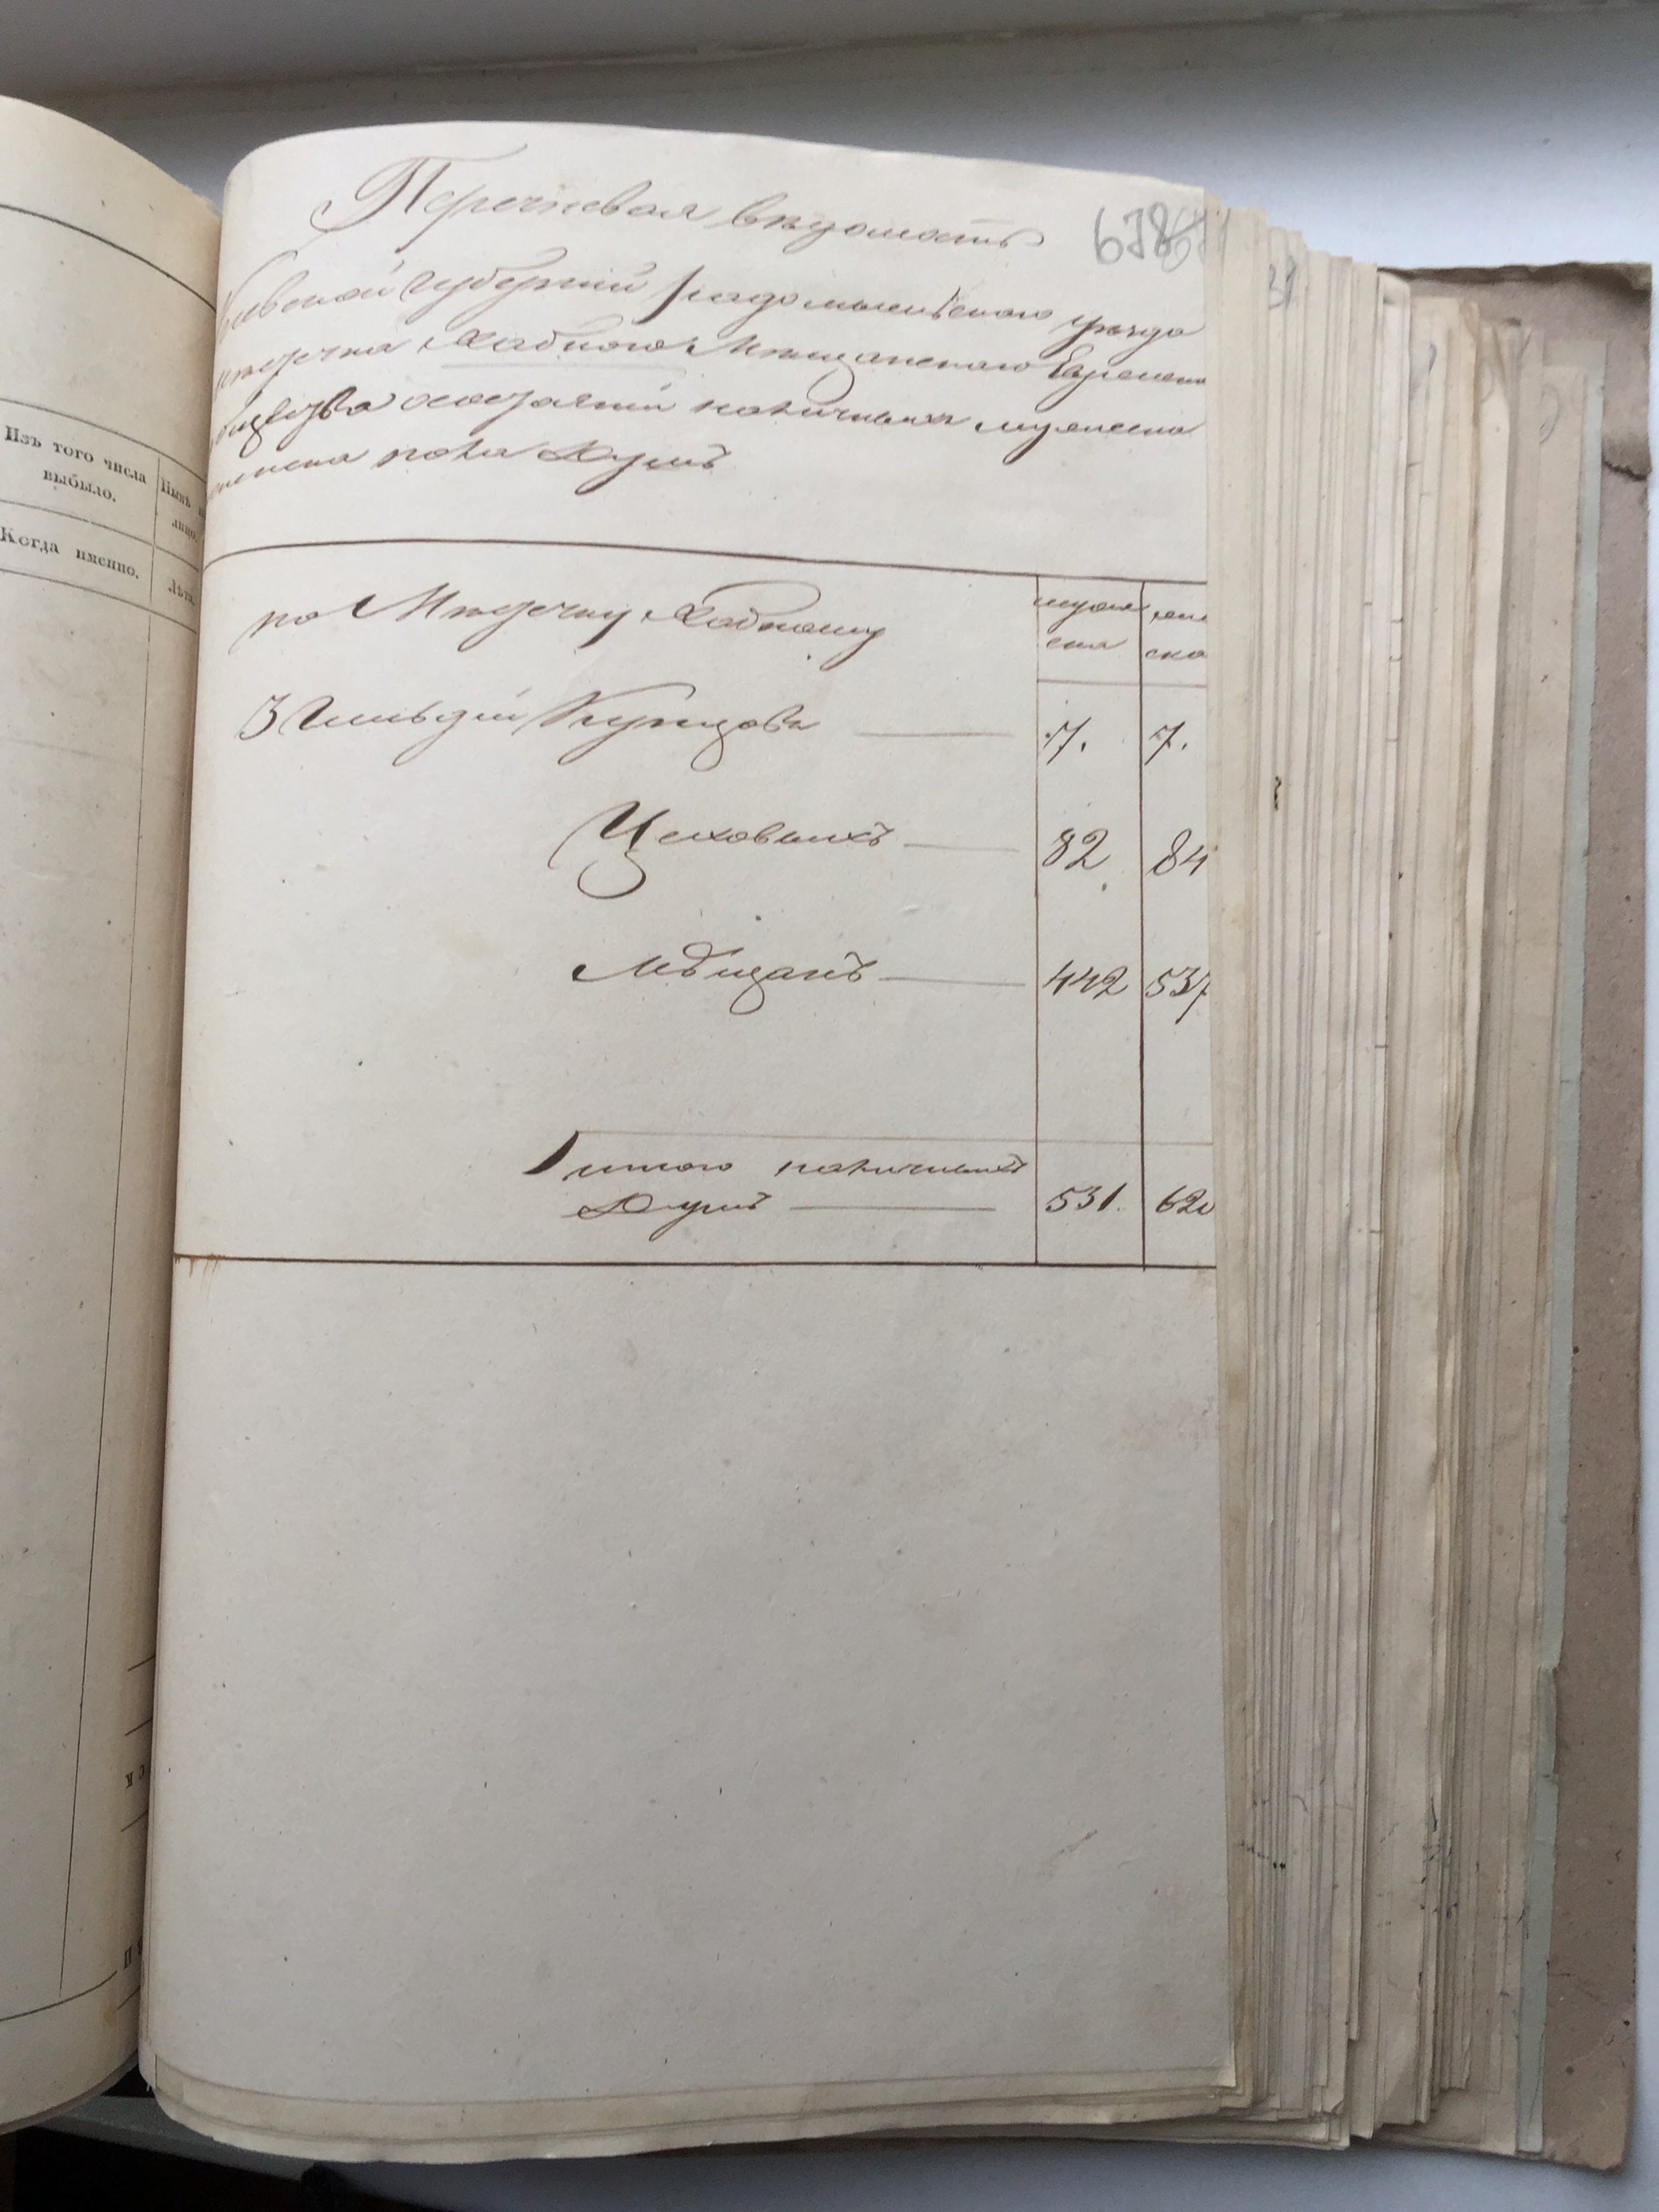 Перечневая вѣдомость
678
Кіевской Губерніи Радомысльскаго уѣзда
мѣстечка Хабного Мѣщанскаго Еврейска
общества о состояніи наличныхъ мужеска
женска пола Душъ
по Мѣстечку Хабному
муже
ска
жен
ска
3 Гильдіи Купцовъ 7. 7.
Цеховыхъ 82 84
Мѣщанъ 442 537
Итого наличныхъ
Душъ 531. 620
Изъ того числа
выбыло.
Когда именно.
Нынѣ
лицо.
Лѣта.